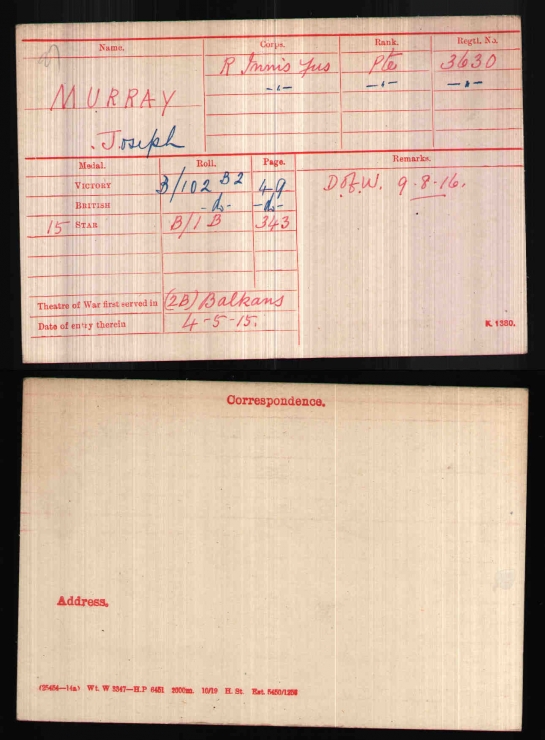 Name. Corps. Rank. Regtl. No.
R Innis Fus Pte 3630
MURRAY -"- -"- -"-
Joseph
Medal. Roll. Page. Remarks.
VICTORY B/102 B2 49 D of W. 9.8.16.
BRITISH -do- -do-
15 STAR B/1 B 343
Theatre of War first served in (2B) Balkans
Date of entry therein 4-5-15.
K. 1380.
Correspondence.
Address.
Wt. W 3347—H.P 6451 2000m. 10/19 H. St.